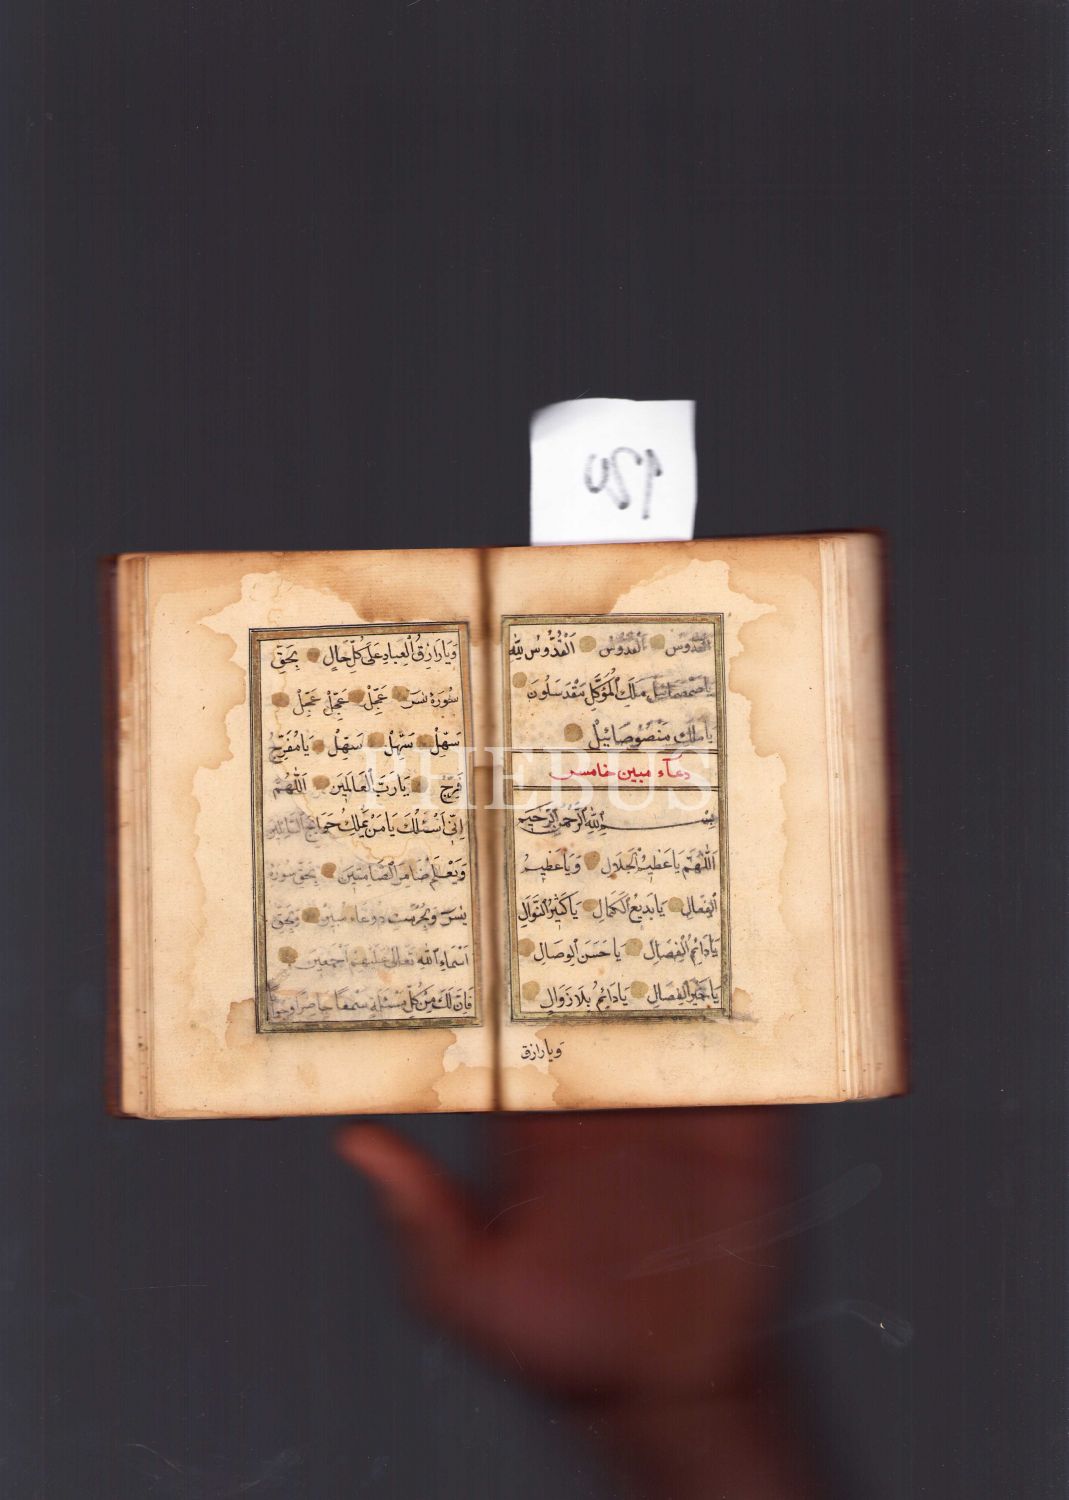 القدوس القدوس اَلْقُدُّوسُ لِلّٰهِ
مَلَكِ الْمُؤَكَّلِ
مَنْصُوصَائِيلَ
دعآء مبين خامس
بِسْمِ اللّٰهِ الرَّحْمٰنِ الرَّحِيمِ
اَللّٰهُمَّ يَا عَظِيمَ الْجَلَالِ وَيَا عَظِيمَ
الْفِعَالِ يَا بَدِيعَ الْكَمَالِ يَا كَثِيرَ النَّوَالِ
يَا دَائِمَ الْفِصَالِ يَا حَسَنَ الْوِصَالِ
الْفِصَالِ يَا دَائِمُ بِلَا زَوَالٍ
ويارازق
وَيَارَازِقُ الْعِبَادِ عَلَى كُلِّ حَالٍ بِحَقِّ
سُورَةِ يٰسٓ عَجِّلْ عَجِّلْ عَجِّلْ
سَهِّلْ سَهِّلْ سَهِّلْ يَا مُفَرِّجُ
فَرِّجْ يَا رَبَّ الْعَالَمِينَ اَللّٰهُمَّ
اِنِّى اَسْئَلُكَ يَا مَنْ يَمْلِكُ حَوَائِجَ السَّائِلِينَ
وَيَعْلَمُ ضَمَائِرَ الصَّامِتِينَ بِحَقِّ سُورَةِ
يٰسٓ وَبِحُرْمَتِ دُعَاءِ مُبِينْ وَبِحَقِّ
اَسْمَاءِ اللّٰهِ تَعَالٰى عَلَيْهِمْ اَجْمَعِينَ
فَاِنَّ لَكَ مِنْ كُلِّ مَسْئَلَةٍ سَمْعًا حَاضِرًا
۱۲۵
PHEBUS